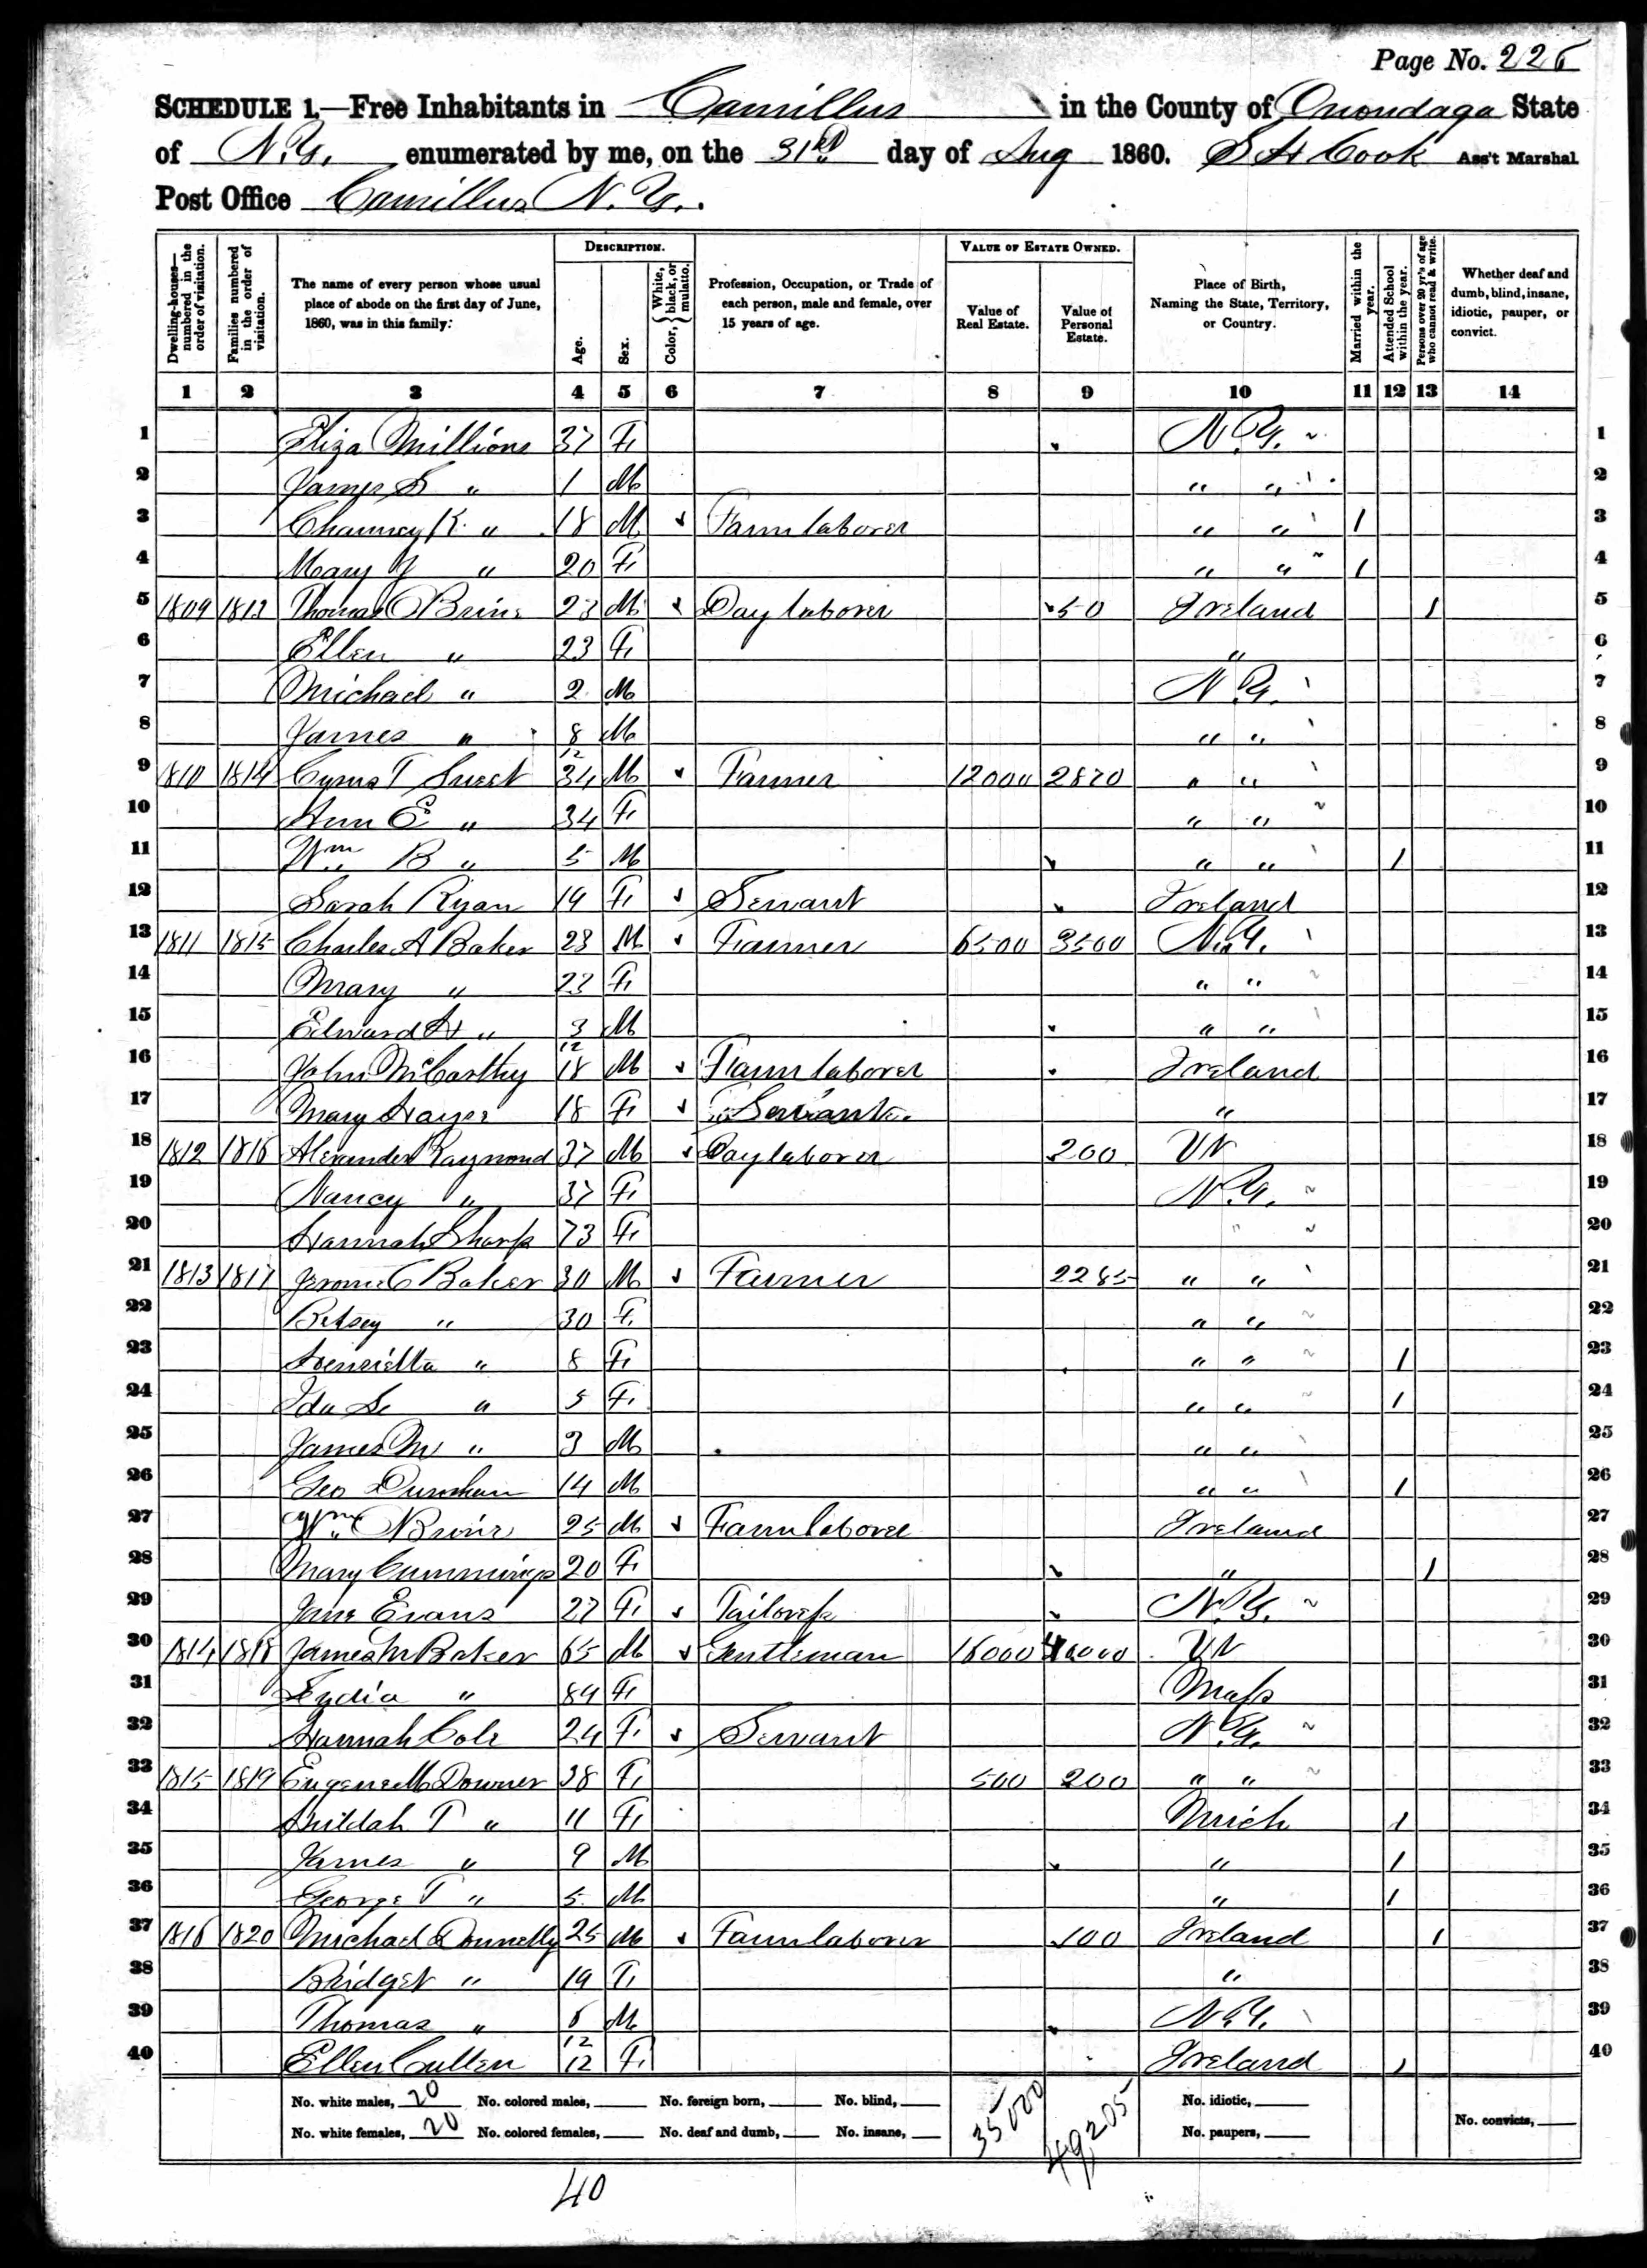 Page No. 225
SCHEDULE 1.—Free Inhabitants in Camillus in the County of Onondaga State
of N.Y. enumerated by me, on the 31st day of Aug 1860. S H Cook Ass't Marshal
Post Office Camillus N.Y.
DESCRIPTION. VALUE OF ESTATE OWNED.
Dwelling-houses—numbered in the order of visitation. Families numbered in the order of visitation. The name of every person whose usual place of abode on the first day of June, 1860, was in this family: Age. Sex. Color, White, black, or mulatto. Profession, Occupation, or Trade of each person, male and female, over 15 years of age. Value of Real Estate. Value of Personal Estate. Place of Birth, Naming the State, Territory, or Country. Married within the year. Attended School within the year. Persons over 20 yr's of age who cannot read & write. Whether deaf and dumb, blind, insane, idiotic, pauper, or convict.
1 2 3 4 5 6 7 8 9 10 11 12 13 14
1 Eliza Millions 37 F N.Y. 1
2 James S " 1 M " " 2
3 Chauncy K. " 18 M Farm laborer " " 1 3
4 Mary " 20 F " " 1 4
5 1809 1813 Thomas OBrine 23 M Day laborer 50 Ireland 1 5
6 Ellen " 23 F " 6
7 Michael " 2 M N.Y. 7
8 James " 8/12 M " " 8
9 1810 1814 Cyrus T Sweet 34 M Farmer 12000 2870 " " 9
10 Ann E " 34 F " " 10
11 Wm B " 5 M " " 1 11
12 Sarah Ryan 19 F Servant Ireland 12
13 1811 1815 Charles A Baker 23 M Farmer 6500 3500 N.Y. 13
14 Mary " 23 F " " 14
15 Edward H " 3/12 M " " 15
16 John McCarthy 18 M Farm laborer Ireland 16
17 Mary Hayes 18 F Servant " 17
18 1812 1816 Alexander Raymond 37 M Day laborer 200 18
19 Nancy " 37 F N.Y. 19
20 Hannah Sharp 73 F " 20
21 1813 1817 Jerome C Baker 30 M Farmer 2285 " " 21
22 Betsey " 30 F " " 22
23 Henrietta " 8 F " " 1 23
24 Ida " 5 F " " 1 24
25 James M " 3 M " " 25
26 Geo Dunham 14 M " " 1 26
27 Wm OBrine 25 M Farm laborer Ireland 27
28 Mary Cummings 20 F " 1 28
29 Jane Evans 27 F Tailoress N.Y. 29
30 1814 1818 James M Baker 65 M Gentleman 16000 40000 30
31 Lydia " 84 F Mass 31
32 Hannah Cole 24 F Servant N.Y. 32
33 1815 1819 Eugene M Downer 38 F 500 200 " " 33
34 Huldah T " 11 F Mich 1 34
35 James " 9 M " 1 35
36 George T " 5 M " 1 36
37 1816 1820 Michael Donnelly 25 M Farm laborer 100 Ireland 1 37
38 Bridget " 19 F " 38
39 Thomas " 6/12 M N.Y. 39
40 Ellen Cullen 12 F Ireland 1 40
No. white males, 20 No. colored males, No. foreign born, No. blind, 35000 49,205 No. idiotic,
No. white females, 20 No. colored females, No. deaf and dumb, No. insane, No. paupers, No. convicts,
40